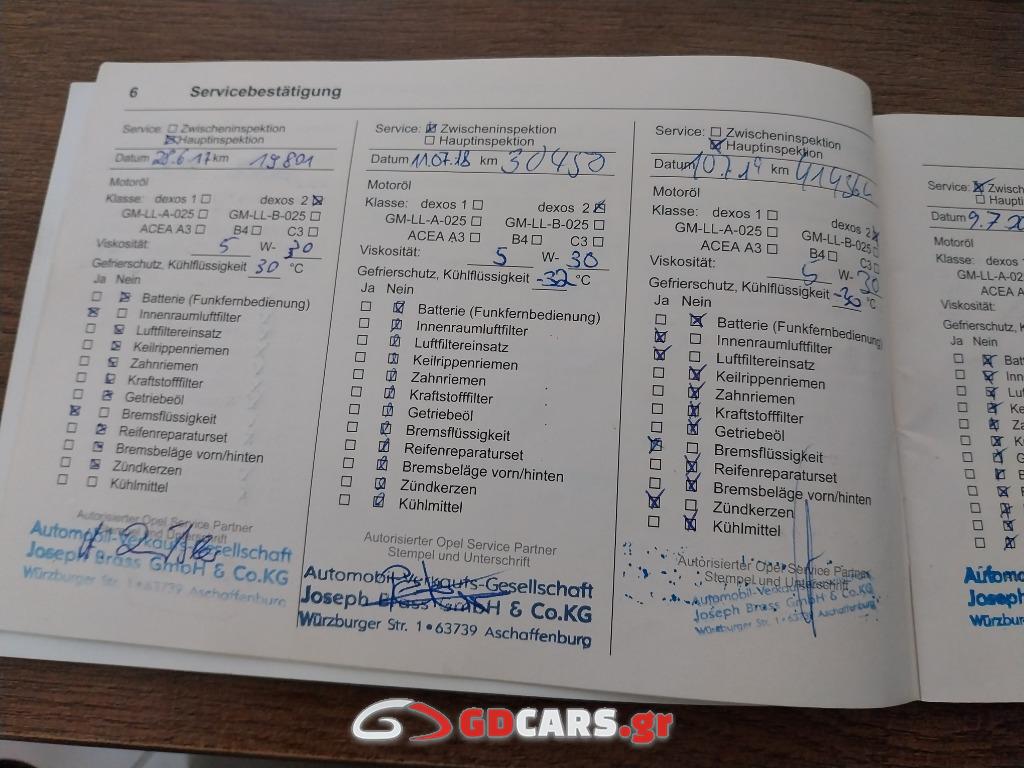 6 Servicebestätigung
Service: Zwischeninspektion
Hauptinspektion
Datum 28.6.17 km 19801
Motoröl
Klasse: dexos 1 dexos 2
GM-LL-A-025 GM-LL-B-025
ACEA A3 B4 C3
Viskosität: 5 W- 30
Gefrierschutz, Kühlflüssigkeit 30 °C
Ja Nein
Batterie (Funkfernbedienung)
Innenraumluftfilter
Luftfiltereinsatz
Keilrippenriemen
Zahnriemen
Kraftstofffilter
Getriebeöl
Bremsflüssigkeit
Reifenreparaturset
Bremsbeläge vorn/hinten
Zündkerzen
Kühlmittel
Autorisierter Opel Service Partner
Stempel und Unterschrift
Automobil-Verkaufs-Gesellschaft
Joseph Brass GmbH & Co.KG
Würzburger Str. 1 • 63739 Aschaffenburg
Service: Zwischeninspektion
Hauptinspektion
Datum 11.07.18 km 30450
Motoröl
Klasse: dexos 1 dexos 2
GM-LL-A-025 GM-LL-B-025
ACEA A3 B4 C3
Viskosität: 5 W- 30
Gefrierschutz, Kühlflüssigkeit -32 °C
Ja Nein
Batterie (Funkfernbedienung)
Innenraumluftfilter
Luftfiltereinsatz
Keilrippenriemen
Zahnriemen
Kraftstofffilter
Getriebeöl
Bremsflüssigkeit
Reifenreparaturset
Bremsbeläge vorn/hinten
Zündkerzen
Kühlmittel
Autorisierter Opel Service Partner
Stempel und Unterschrift
Automobil-Verkaufs-Gesellschaft
Joseph Brass GmbH & Co.KG
Würzburger Str. 1 • 63739 Aschaffenburg
Service: Zwischeninspektion
Hauptinspektion
Datum 10.7.19 km
Motoröl
Klasse: dexos 1 dexos 2
GM-LL-A-025 GM-LL-B-025
ACEA A3 B4 C3
Viskosität: 5 W- 30
Gefrierschutz, Kühlflüssigkeit -30 °C
Ja Nein
Batterie (Funkfernbedienung)
Innenraumluftfilter
Luftfiltereinsatz
Keilrippenriemen
Zahnriemen
Kraftstofffilter
Getriebeöl
Bremsflüssigkeit
Reifenreparaturset
Bremsbeläge vorn/hinten
Zündkerzen
Kühlmittel
Autorisierter Opel Service Partner
Stempel und Unterschrift
Automobil-Verkaufs-Gesellschaft
Joseph Brass GmbH & Co.KG
Würzburger Str. 1 • 63739 Aschaffenburg
Service: Zwisc
Haupti
Datum 9.7.20
Motoröl
Klasse: dexos
GM-LL-A
ACEA A
Viskosität:
Gefrierschutz, K
Ja Nein
Bat
Inn
Lu
Ke
Za
K
G
Automo
Joseph
Würzbu
GDCARS.gr